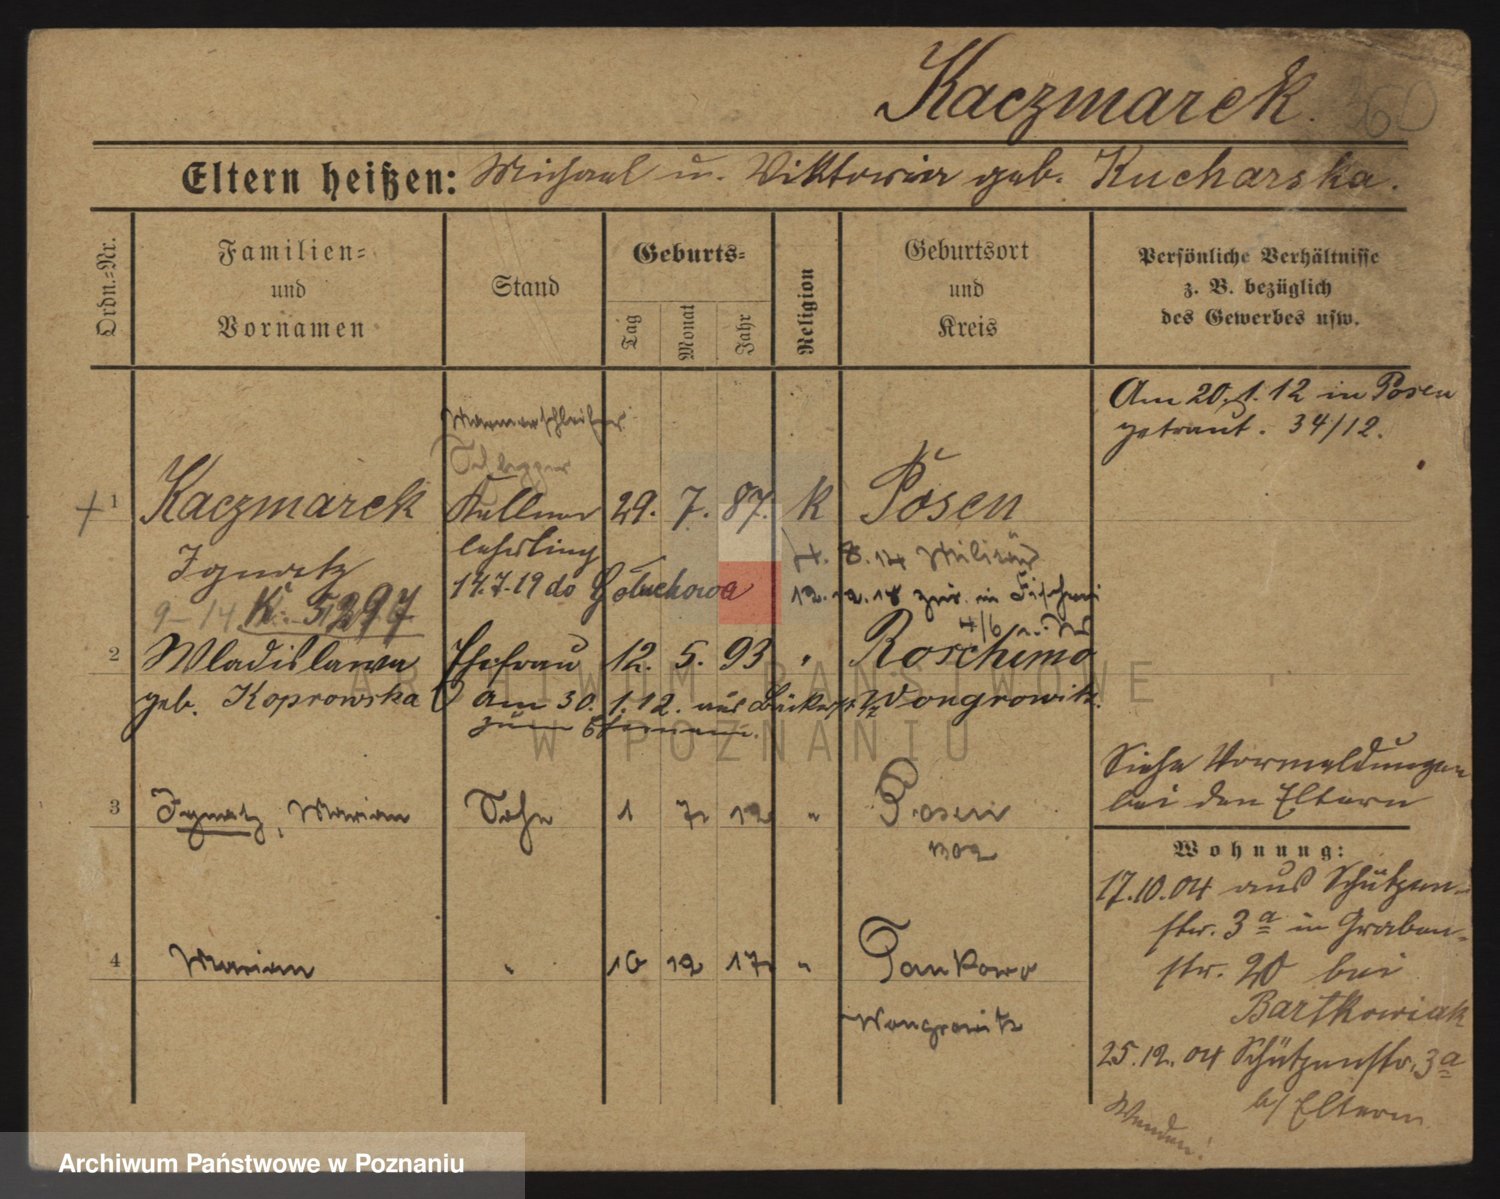 Kaczmarek. 360
Eltern heißen: Michael u. Viktoria geb. Kucharska.
Ordn.-Nr.
Familien-
und
Vornamen
Stand
Geburts-
Tag
Monat
Jahr
Religion
Geburtsort
und
Kreis
Persönliche Verhältnisse
z. B. bezüglich
des Gewerbes usw.
Am 20.1.12 in Posen
getraut. 34/12.
Marmorschleifer
+ 1 Kaczmarek Kellner 29. 7. 87. k Posen
lehrling
Ignatz
4. 8. 14 Militär
14.7.19 do Gołuchowa
12.12.18 zur. in
9-14 K. 5297
4/6
2 Wladislawa Ehefrau 12. 5. 93 " Roschemo
geb. Koprowska
am 30. 1.12. aus
Wongrowitz.
zum
Siehe Vormeldungen
bei den Eltern
3 Ignatz, Marian Sohn 1 7 12 " Posen
1302
Wohnung:
17.10.04 aus Schützen-
str. 3a in Graben-
str. 20 bei
Bartkowiak
4 Marian " 16 12 17 "
Wongrowitz
25.12.04 Schützenstr. 3a
b/ Eltern
Wenden!
ARCHIWUM PAŃSTWOWE
W POZNANIU
Archiwum Państwowe w Poznaniu